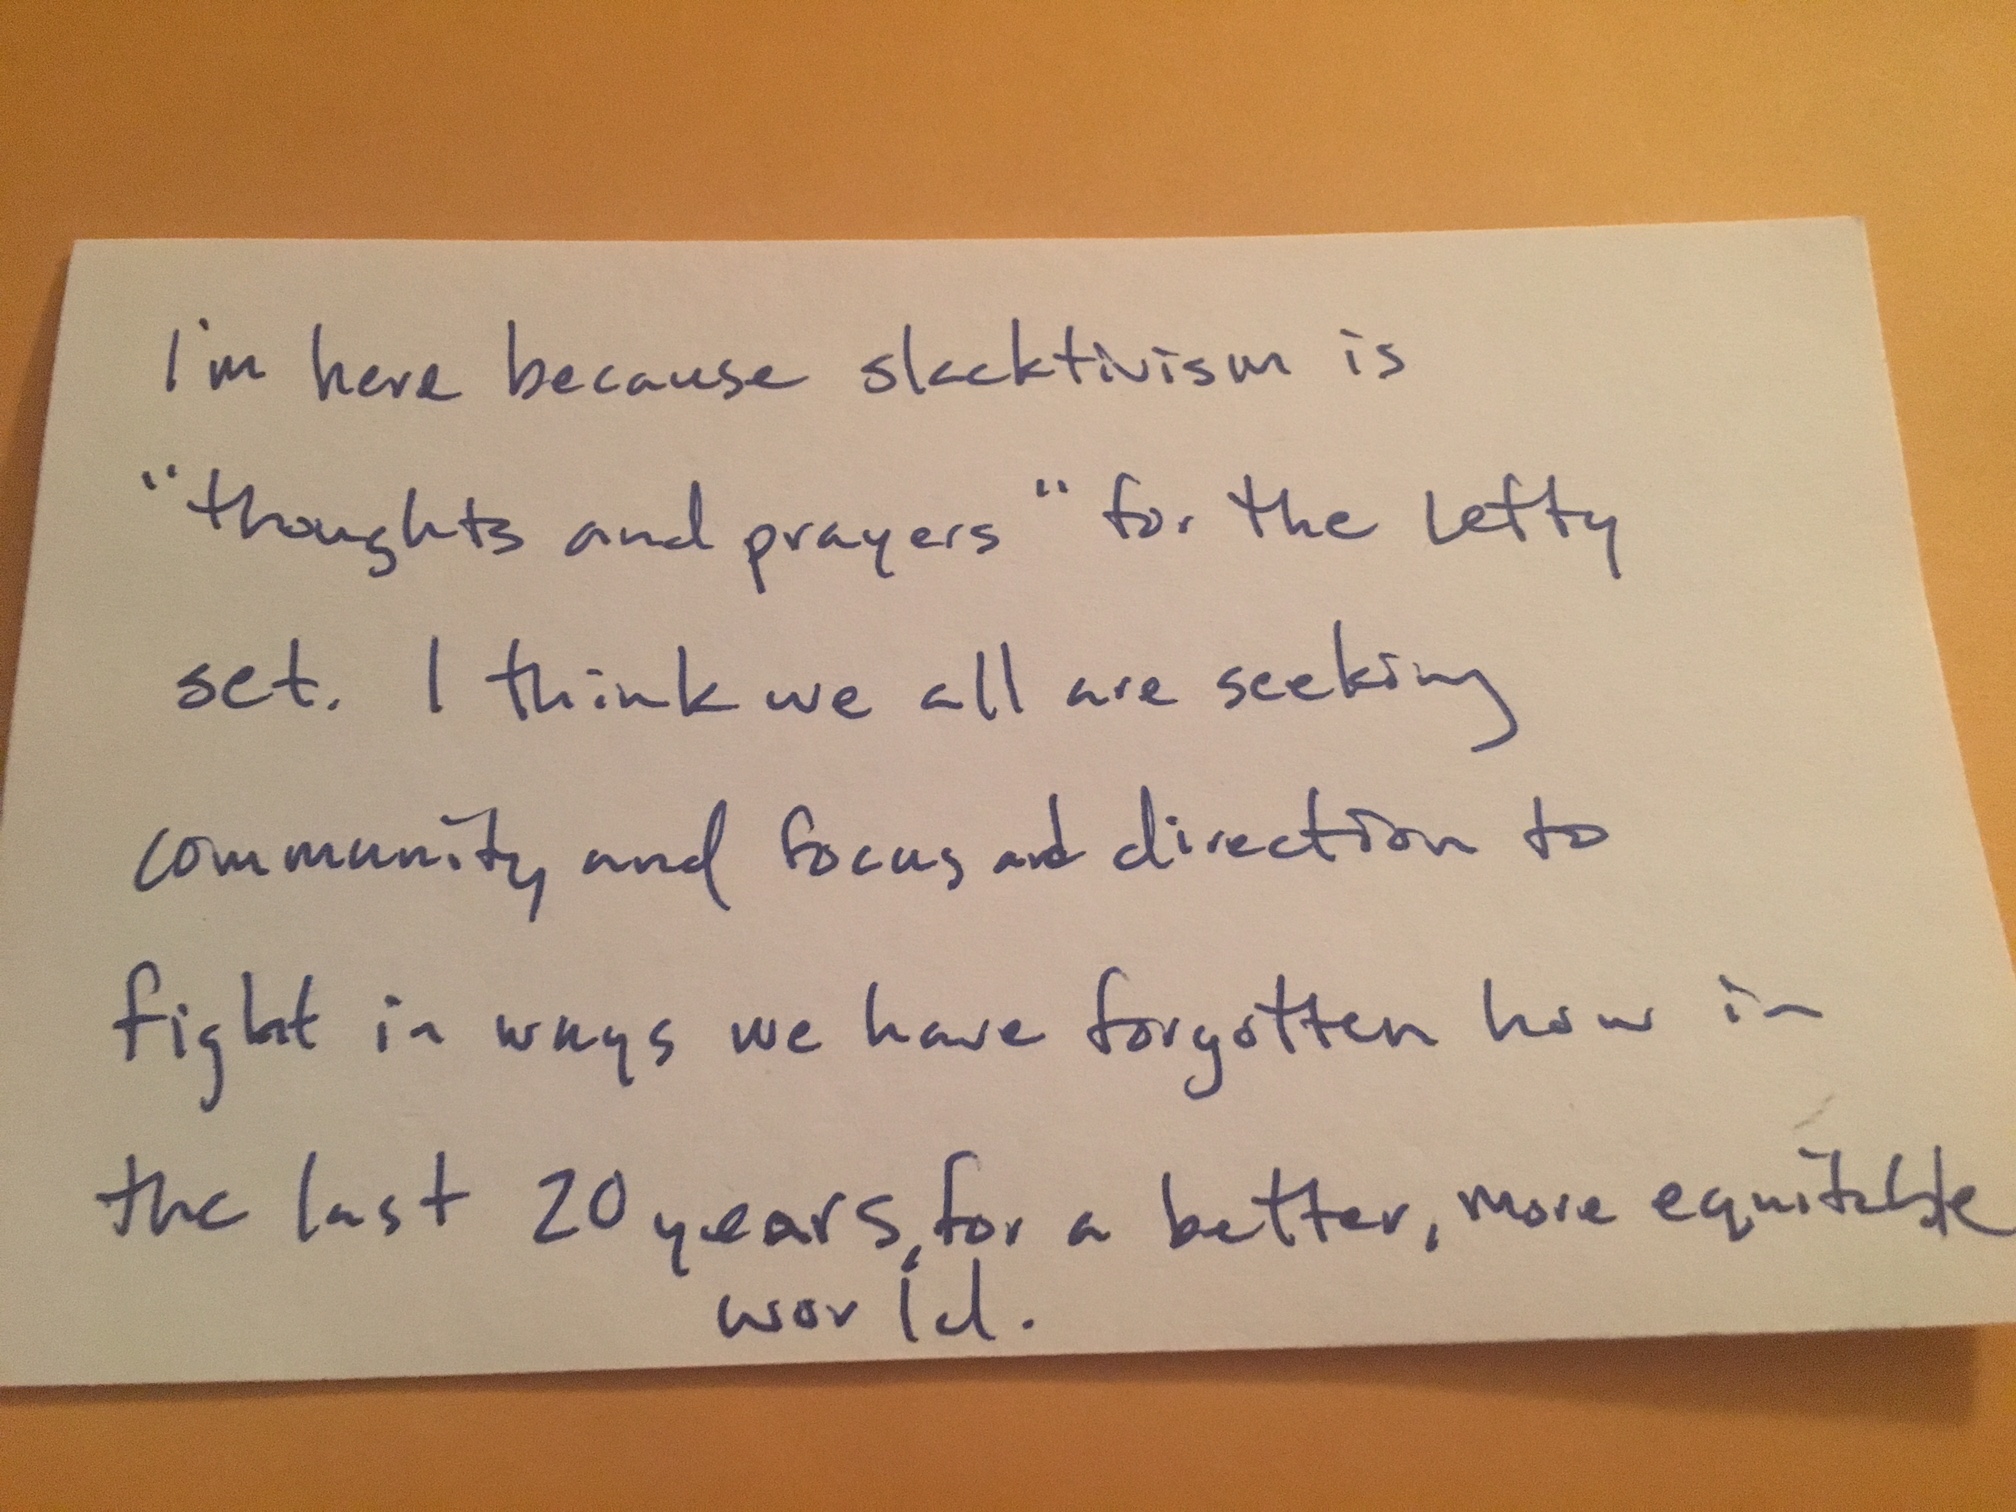 I'm here because slacktivism is
"thoughts and prayers" for the lefty
set. I think we all are seeking
community and focus and direction to
fight in ways we have forgotten how in
the last 20 years, for a better, more equitable
world.